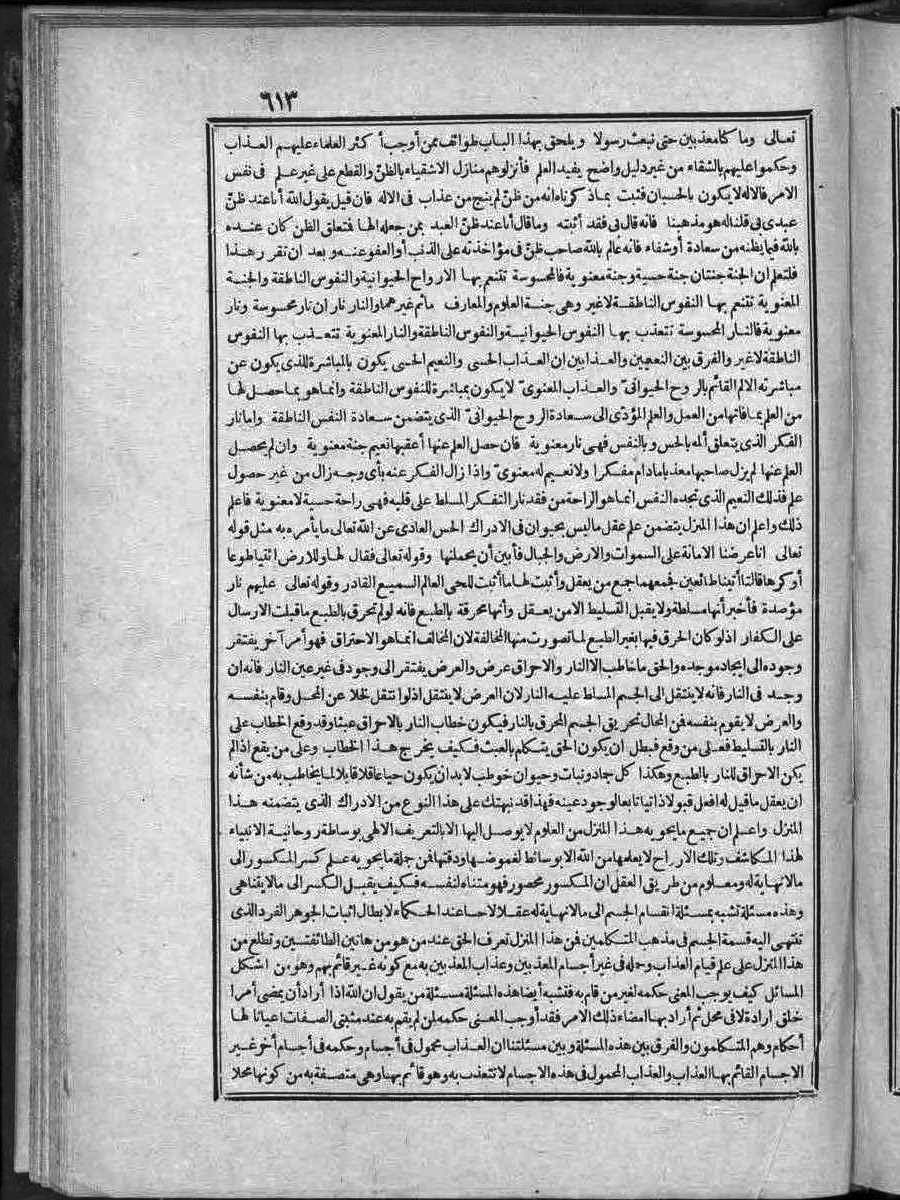 ٦١٣
تعالى وما كنا معذبين حتى نبعث رسولا ويلحق بهذا الباب طوائف ممن أوجب أكثر العلماء عليهم العذاب
وحكموا عليهم بالشقاء من غير دليل واضح يفيد العلم فأنزلوهم منازل الاشقياء بالظنّ والقطع على غير علم فى نفس
الامر فالاله لا يكون بالحسبان فثبت بماذكرناه انه من ظنّ لم ينج من عذاب فى الاله فان قيل يقول الله أنا عند ظنّ
عبدى بى قلنا له هو مذهبنا فانه قال بى فقد أثبته وما قال أنا عند ظنّ العبد بمن جعله الها فتعلق الظن كان عنده
بالله فيما يظنه من سعادة أو شقاء فانه عالم بالله صاحب ظنّ فى مؤاخذته على الذنب أو العفو عنه وبعد ان تقرر هذا
فلتعلم ان الجنة جنتان جنة حسية وجنة معنوية فالمحسوسة تتنعم بها الارواح الحيوانية والنفوس الناطقة والجنة
المعنوية تتنعم بها النفوس الناطقة لا غير وهى جنة العلوم والمعارف ماثم غيرهما والنار ناران نار محسوسة ونار
معنوية فالنار المحسوسة تتعذب بها النفوس الحيوانية والنفوس الناطقة والنار المعنوية تتعذب بها النفوس
الناطقة لا غير والفرق بين النعيمين والعذابين ان العذاب الحسى والنعيم الحسى يكون بالمباشرة للذى يكون عن
مباشرته الالم القائم بالروح الحيوانىّ والعذاب المعنوىّ لا يكون بمباشرة للنفوس الناطقة وانما هو بما حصل لها
من العلم بما فاتها من العمل والعلم المؤدّى الى سعادة الروح الحيوانىّ الذى يتضمن سعادة النفس الناطقة وأما نار
الفكر الذى يتعلق ألمه بالحس وبالنفس فهى نار معنوية فان حصل العلم عنها أعقبها نعيم جنة معنوية وان لم يحصل
العلم عنها لم يزل صاحبها معذبا مادام مفكرا ولا نعيم له معنوىّ واذا زال الفكر عنه بأى وجه زال من غير حصول
علم فذلك النعيم الذى تجده النفس انما هو الراحة من فقد نار التفكر المسلط على قلبه فهى راحة حسية لا معنوية فاعلم
ذلك واعلم ان هذا المنزل يتضمن علم عقل ما ليس بحيوان فى الادراك الحس العادى عن الله تعالى ما يأمره به مثل قوله
تعالى انا عرضنا الامانة على السموات والارض والجبال فأبين أن يحملنها وقوله تعالى فقال لها وللارض ائتيا طوعا
أو كرها قالتا أتينا طائعين فجمعهما جمع من يعقل وأثبت لهما ما أثبت للحى العالم السميع القادر وقوله تعالى عليهم نار
مؤصدة فأخبر أنها مسلطة ولا يقبل التسليط الا من يعقل وأنها محرقة بالطبع فانه لو لم تحرق بالطبع ما قبلت الارسال
على الكفار اذ لو كان الحرق فيها بغير الطبع لما تصورت منها المخالفة لان المخالف انما هو الاحتراق فهو أمر آخر يفتقر
وجوده الى ايجاد موجده والحق ما خاطب الا النار والاحراق عرض والعرض يفتقر الى وجوده فى غير عين النار فانه ان
وجد فى النار فانه لا ينتقل الى الجسم المسلط عليه النار لان العرض لا ينتقل اذ لو انتقل لخلا عن المحل وقام بنفسه
والعرض لا يقوم بنفسه فن المحال تحريق الجسم المحرق بالنار فيكون خطاب النار بالاحراق عبثا وقد وقع الخطاب على
النار بالتسليط فعلى من وقع فبطل ان يكون الحق يتكلم بالعبث فكيف يخرج هذا الخطاب وعلى من يقع اذا لم
يكن الاحراق للنار بالطبع وهكذا كل جماد ونبات وحيوان خوطب لابد ان يكون حيا عاقلا قابلا لما يخاطب به من شأنه
ان يعقل ما قيل له افعل قبولا ذاتيا تابعا لوجود عينه فهذا قد نبهتك على هذا النوع من الادراك الذى يتضمنه هذا
المنزل واعلم ان جميع ما يحويه هذا المنزل من العلوم لا يوصل اليها الا بالتعريف الالهى بوساطة روحانية الانبياء
لهذا المكاشف وتلك الارواح لا يعلمها من الله الا بوسائط لغموضها ودقتها فمن جملة ما يحويه علم كسر المكسور الى
مالا نهاية له ومعلوم من طريق العقل ان المكسور محصور فهو متناه لنفسه فكيف يقبل الكسر الى مالا يتناهى
وهذه مسئلة تشبه بمسئلة انقسام الجسم الى مالا نهاية له عقلا لا حسا عند الحكماء لابطال اثبات الجوهر الفرد الذى
تنتهى اليه قسمة الجسم فى مذهب المتكلمين فن هذا المنزل تعرف الحق عند من هو من هاتين الطائفتين وتطلع من
هذا المنزل على علم قيام العذاب وحمله فى غير أجسام المعذبين وعذاب المعذبين به مع كونه غير قائم بهم وهو من اشكل
المسائل كيف يوجب المعنى حكمه لغير من قام به فتشبه أيضا هذه المسئلة مسئلة من يقول ان الله اذا أراد أن يمضى أمرا
خلق ارادة لا فى محل ثم أراد بها امضاء ذلك الامر فقد أوجب المعنى حكمه لمن لم يقم به عند مثبتى الصفات اعيانا لها
أحكام وهم المتكلمون والفرق بين هذه المسئلة وبين مسئلتنا ان العذاب محمول فى أجسام وحكمه فى أجسام أخر غير
الاجسام القائم بها العذاب والعذاب المحمول فى هذه الاجسام لا تتعذب به وهو قائم بها وهى متصفة به من كونها محلا